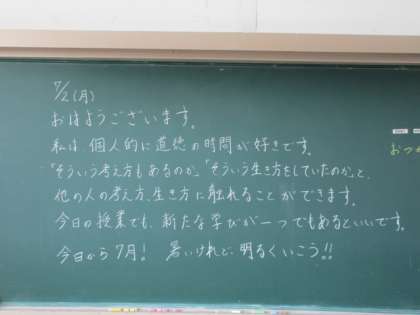 7/2(月)
おはようございます。
私は個人的に道徳の時間が好きです。
「そういう考え方もあるのか」「そういう生き方をしていたのか」と、
他の人の考え方、生き方に触れることができます。
今日の授業でも、新たな学びが一つでもあるといいです。
今日から7月! 暑いけれど、明るくいこう!!
おつか